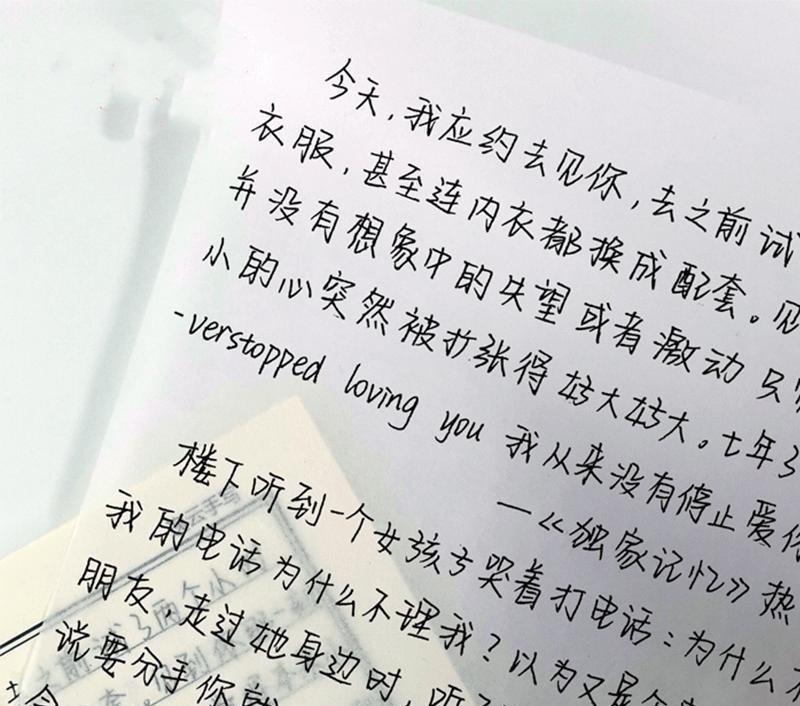 今天,我应约去见你,去之前试
衣服,甚至连内衣都换成配套。见
并没有想象中的失望或者激动只
小的心突然被扩张得好大好大。七年了
-verstopped loving you 我从来没有停止爱你
—《独家记忆》热
楼下听到一个女孩子哭着打电话:为什么不
我的电话为什么不理我?以为又是个
朋友,走过她身边时,听
说要分手你就